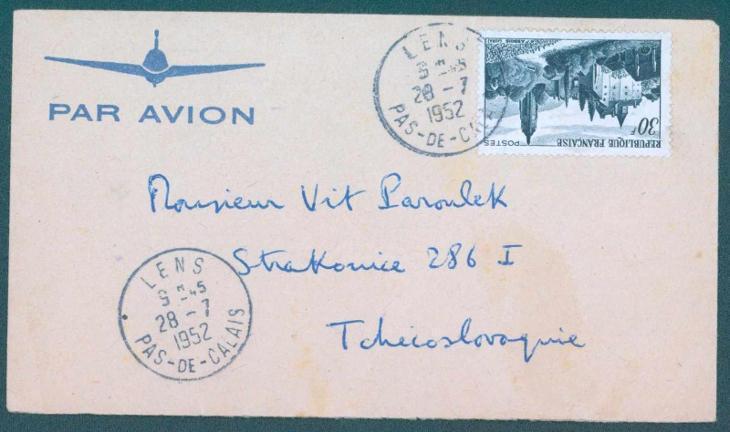 PAR AVION
LENS
9 H-45
28-7
1952
PAS-DE-CALAIS
30F
POSTES
REPUBLIQUE FRANÇAISE
Monsieur Vit Paroulek
Strakonice 286 I
Tchécoslovaquie
LENS
9 H-45
28-7
1952
PAS-DE-CALAIS